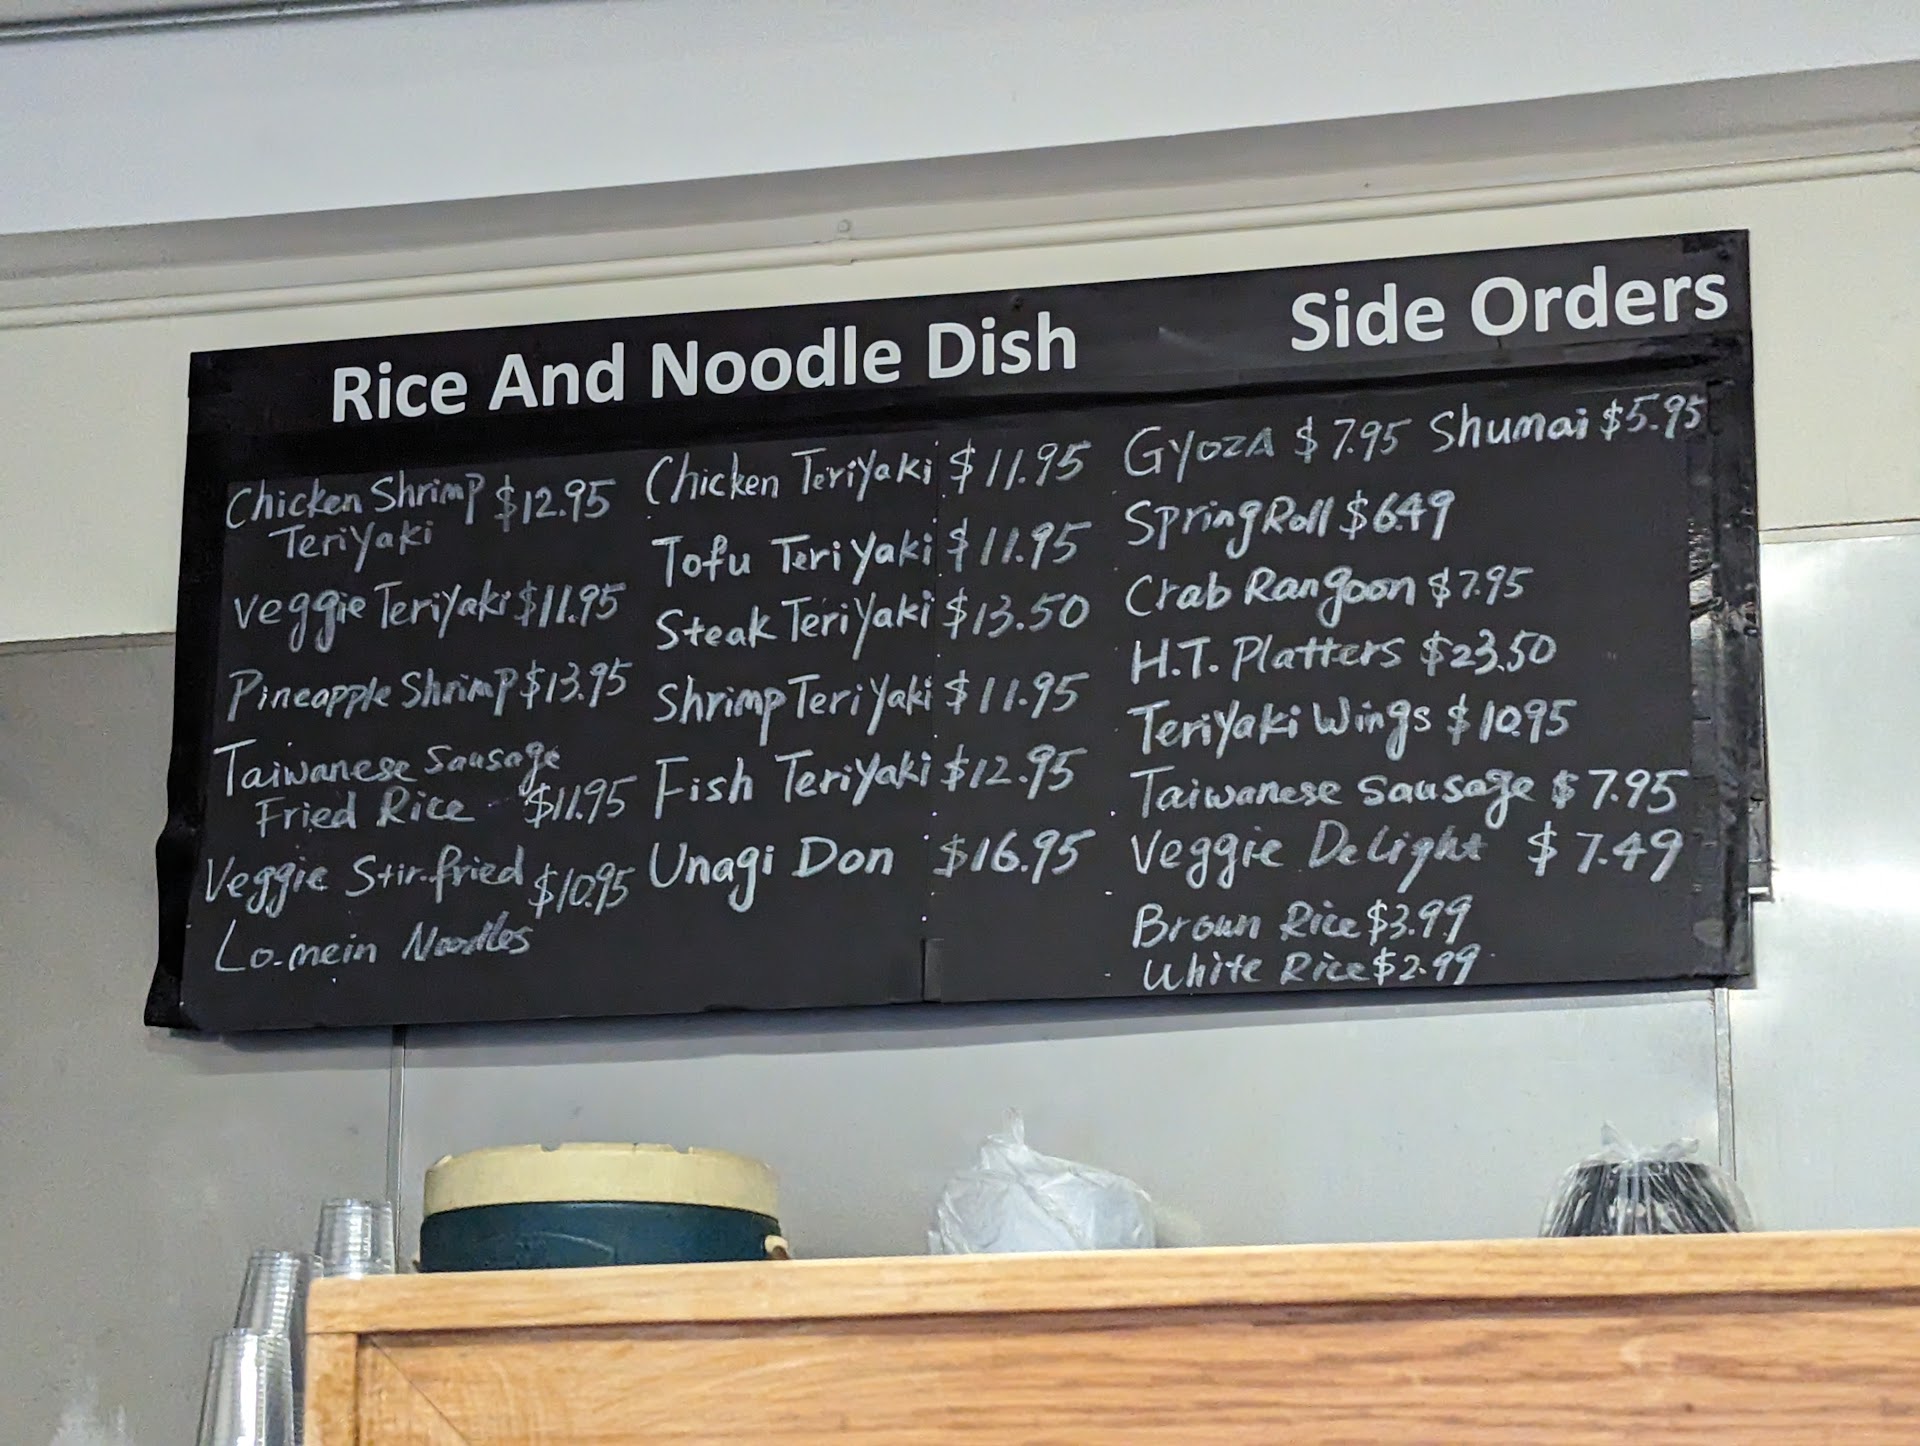 Rice And Noodle Dish
Chicken Shrimp $12.95
Teriyaki
Veggie Teriyaki $11.95
Pineapple Shrimp $13.95
Taiwanese Sausage
Fried Rice $11.95
Veggie Stir-fried $10.95
Lo-mein Noodles
Chicken Teriyaki $11.95
Tofu Teriyaki $11.95
Steak Teriyaki $13.50
Shrimp Teriyaki $11.95
Fish Teriyaki $12.95
Unagi Don $16.95
Side Orders
GYOZA $7.95 Shumai $5.95
Spring Roll $6.49
Crab Rangoon $7.95
H.T. Platters $23.50
Teriyaki Wings $10.95
Taiwanese Sausage $7.95
Veggie Delight $7.49
Brown Rice $3.99
White Rice $2.99